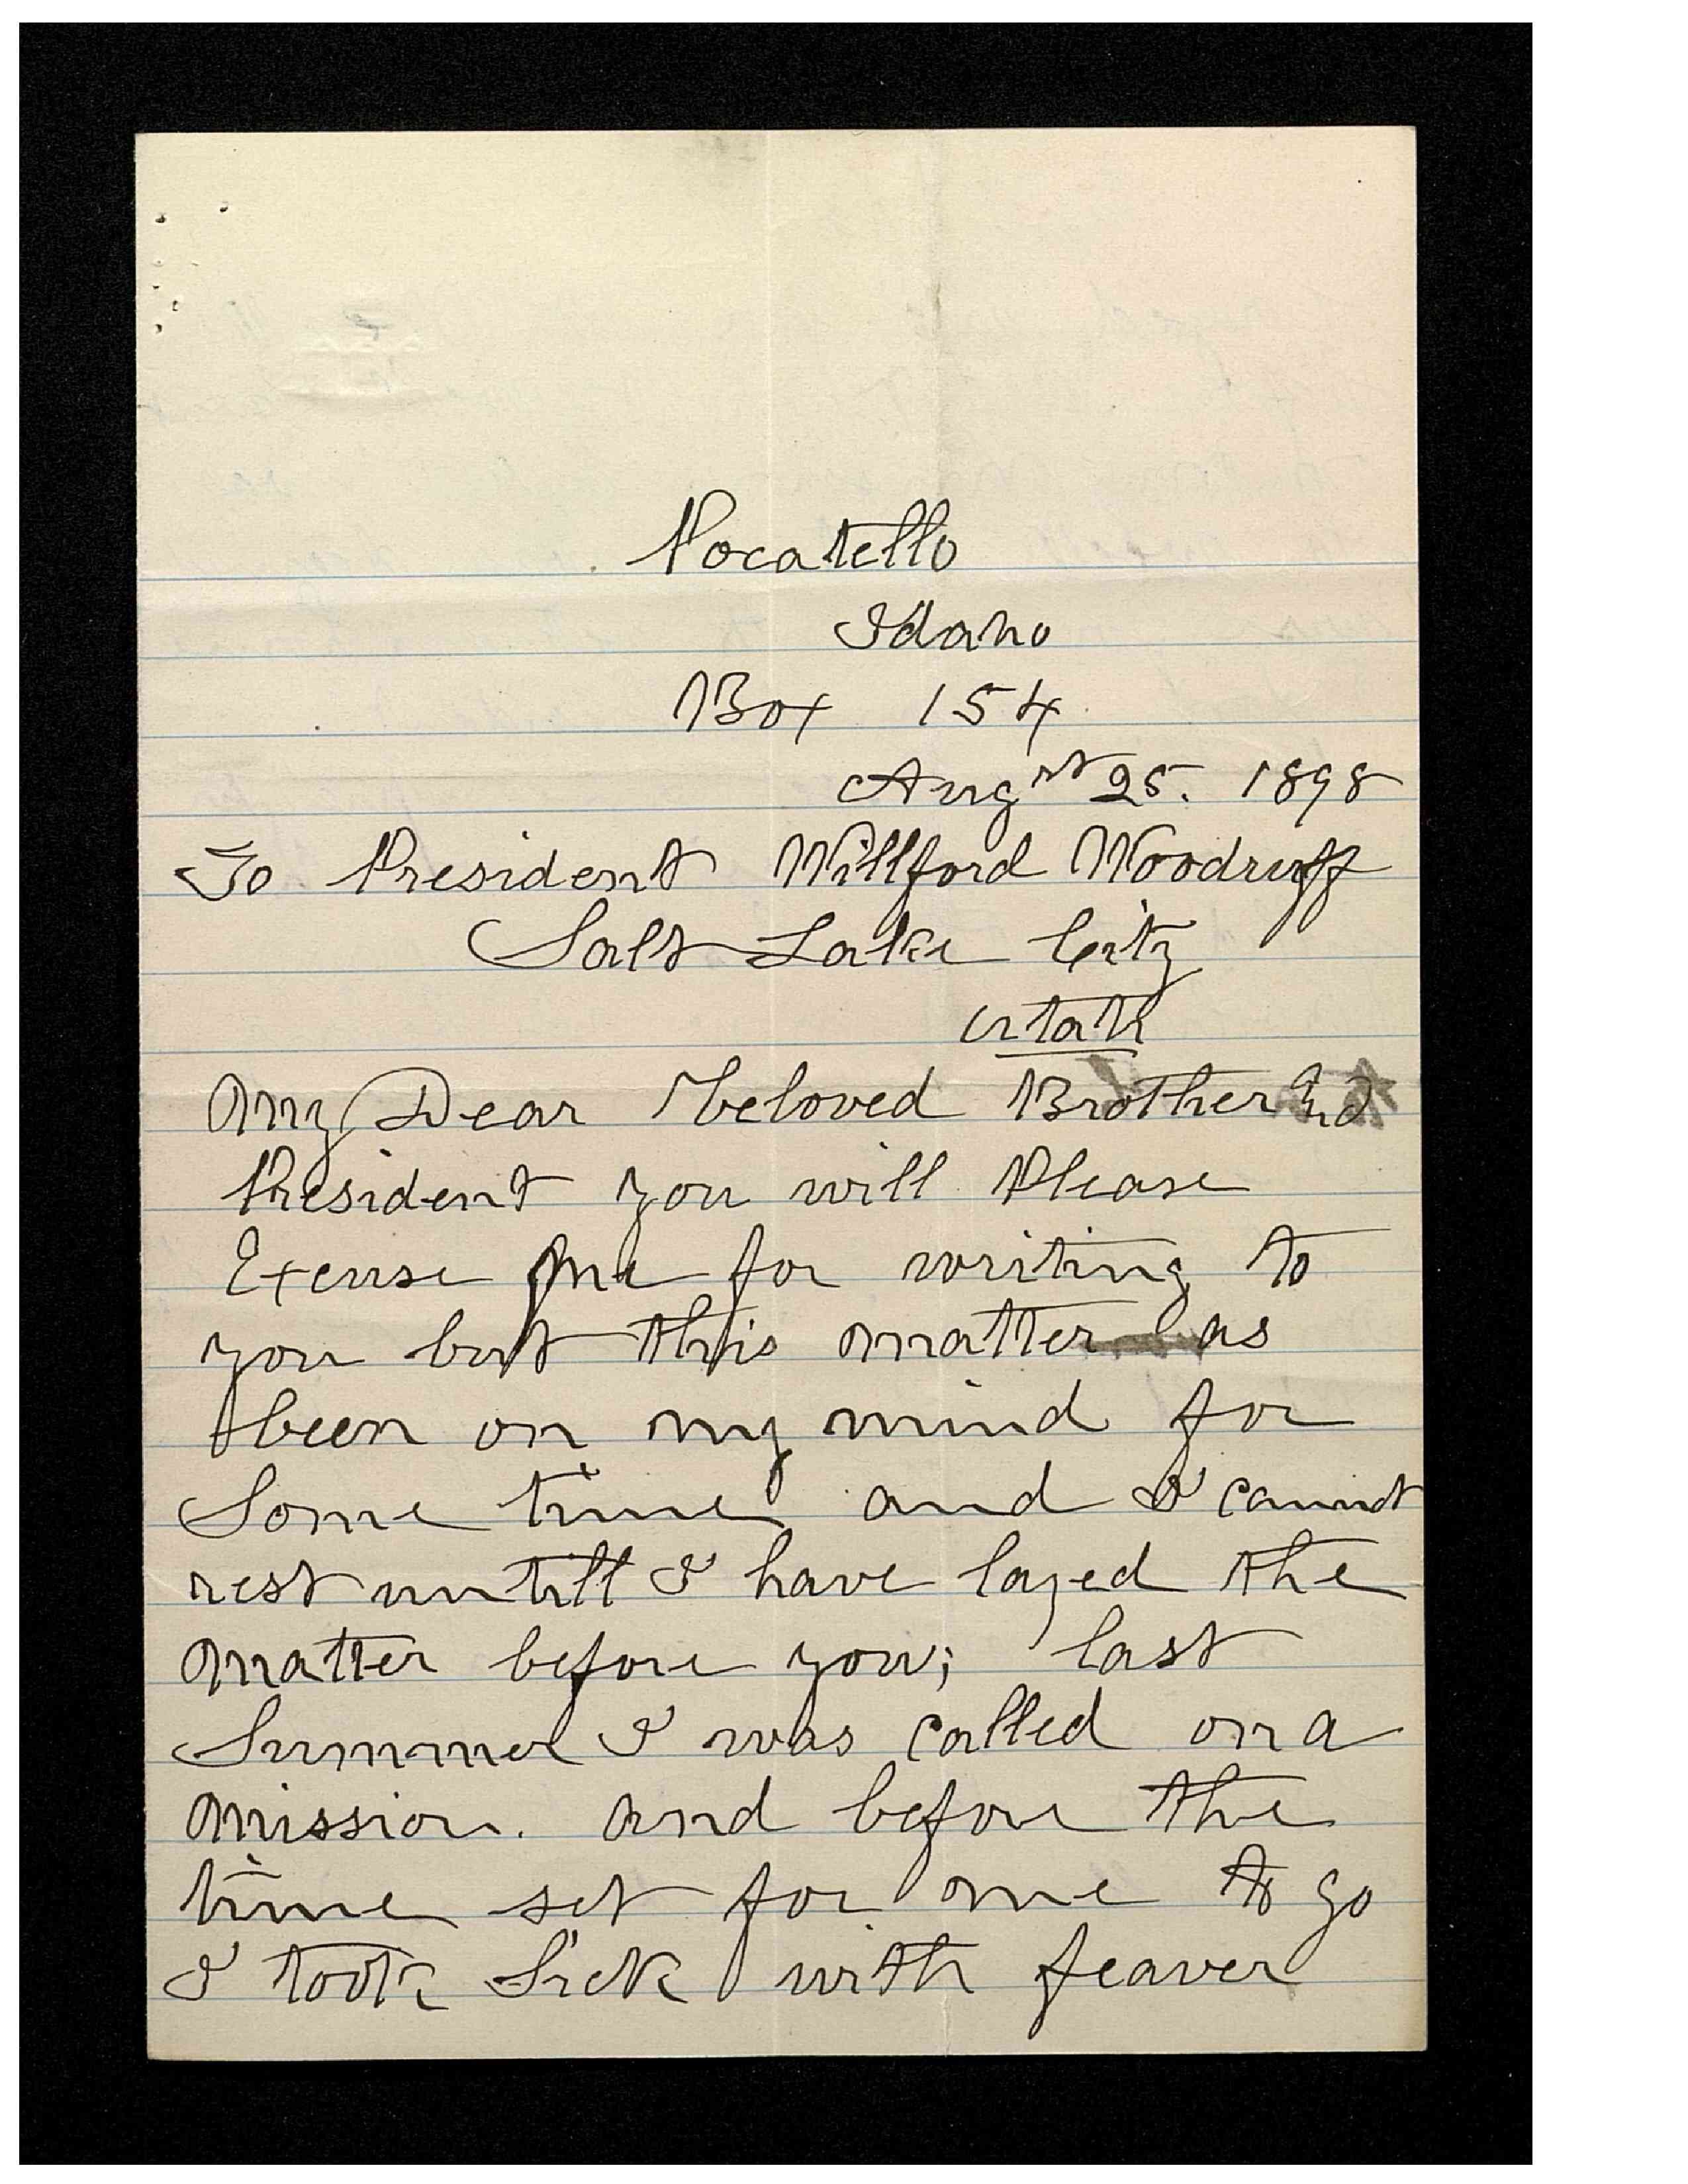 Pocatello
Idaho
Box 154
Augst 25. 1898
To President Willford Woodruff
Salt Lake City
Utah
My Dear beloved Brother End
President you will Please
Excuse me for writing to
you but this matter as
been on my mind for
Some time and I cannot
rest untill I have layed the
matter before you; last
Summer I was called on a
mission. and before the
time set for me to go
I took Sick with feaver